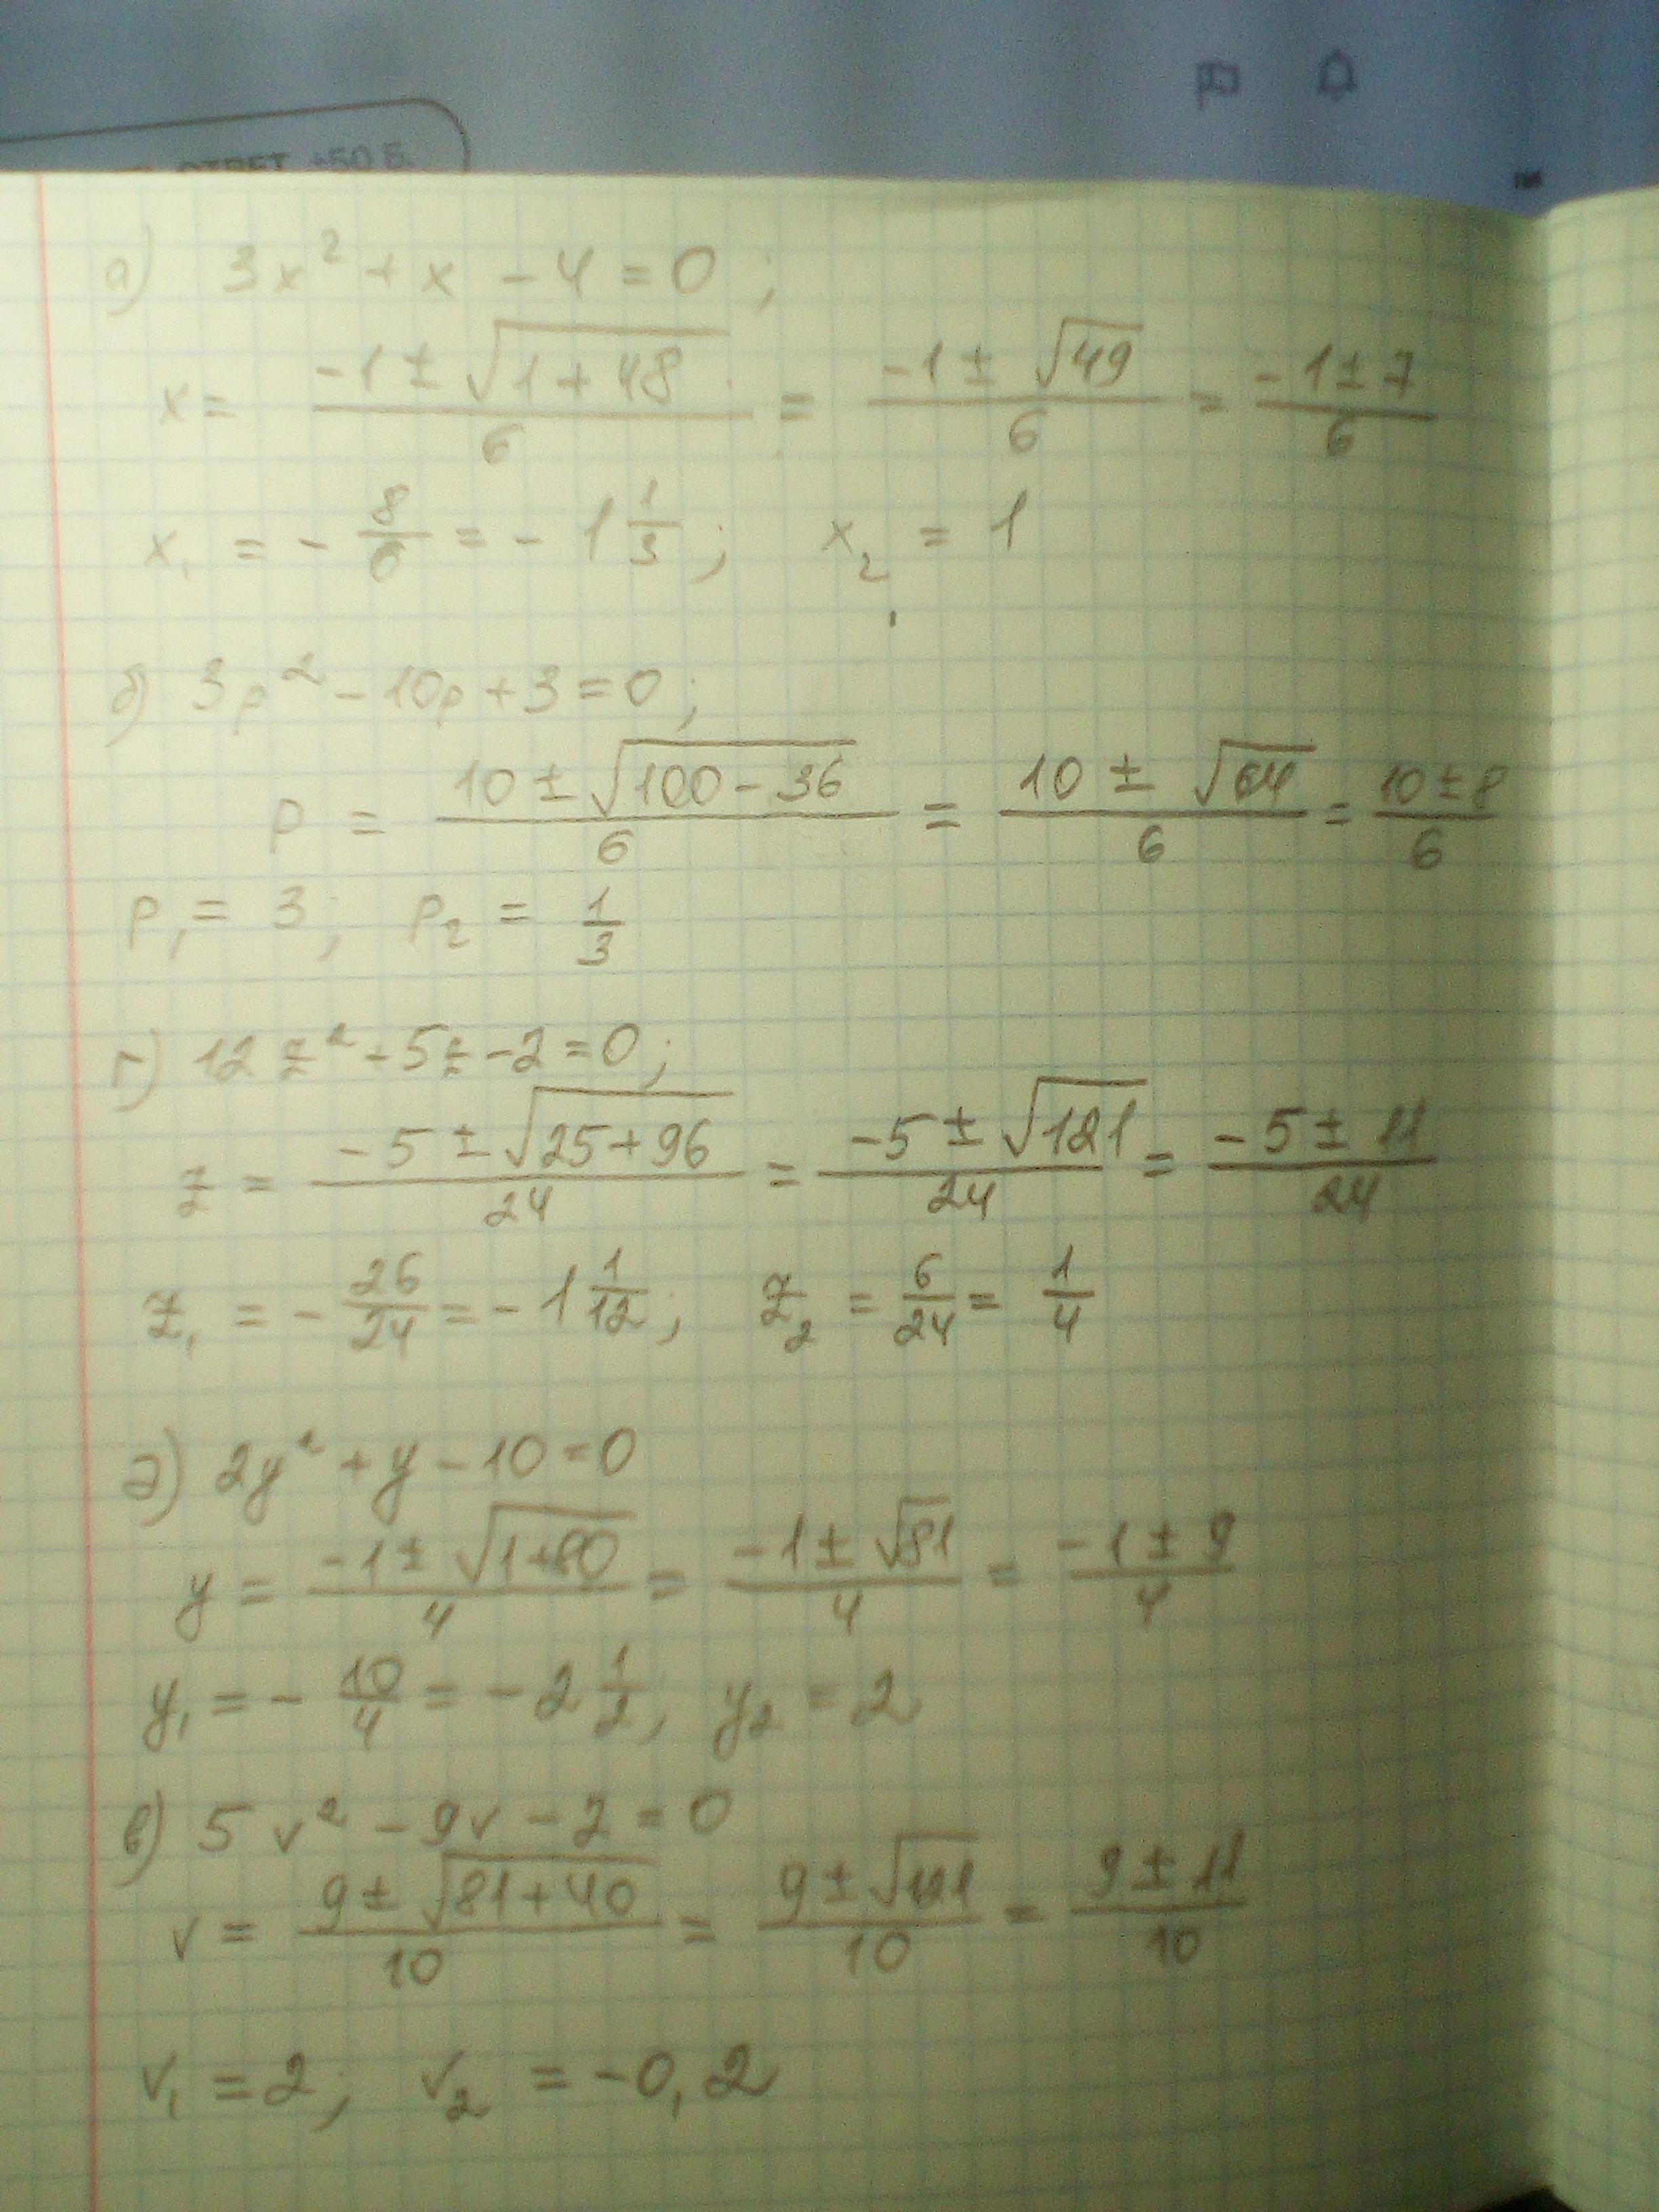 ОТВЕТ +50 Б.
а) 3x² + x - 4 = 0 ;
x = (-1 ± √(1 + 48))/6 = (-1 ± √49)/6 = (-1 ± 7)/6
x₁ = - 8/6 = - 1 1/3 ; x₂ = 1
б) 3p² - 10p + 3 = 0 ;
p = (10 ± √(100 - 36))/6 = (10 ± √64)/6 = (10 ± 8)/6
p₁ = 3 ; p₂ = 1/3
г) 12z² + 5z - 2 = 0 ;
z = (-5 ± √(25 + 96))/24 = (-5 ± √121)/24 = (-5 ± 11)/24
z₁ = - 26/24 = - 1 1/12 ; z₂ = 6/24 = 1/4
д) 2y² + y - 10 = 0
y = (-1 ± √(1+80))/4 = (-1 ± √81)/4 = (-1 ± 9)/4
y₁ = - 10/4 = - 2 1/2 , y₂ = 2
в) 5v² - 9v - 2 = 0
v = (9 ± √(81 + 40))/10 = (9 ± √121)/10 = (9 ± 11)/10
v₁ = 2 ; v₂ = -0,2